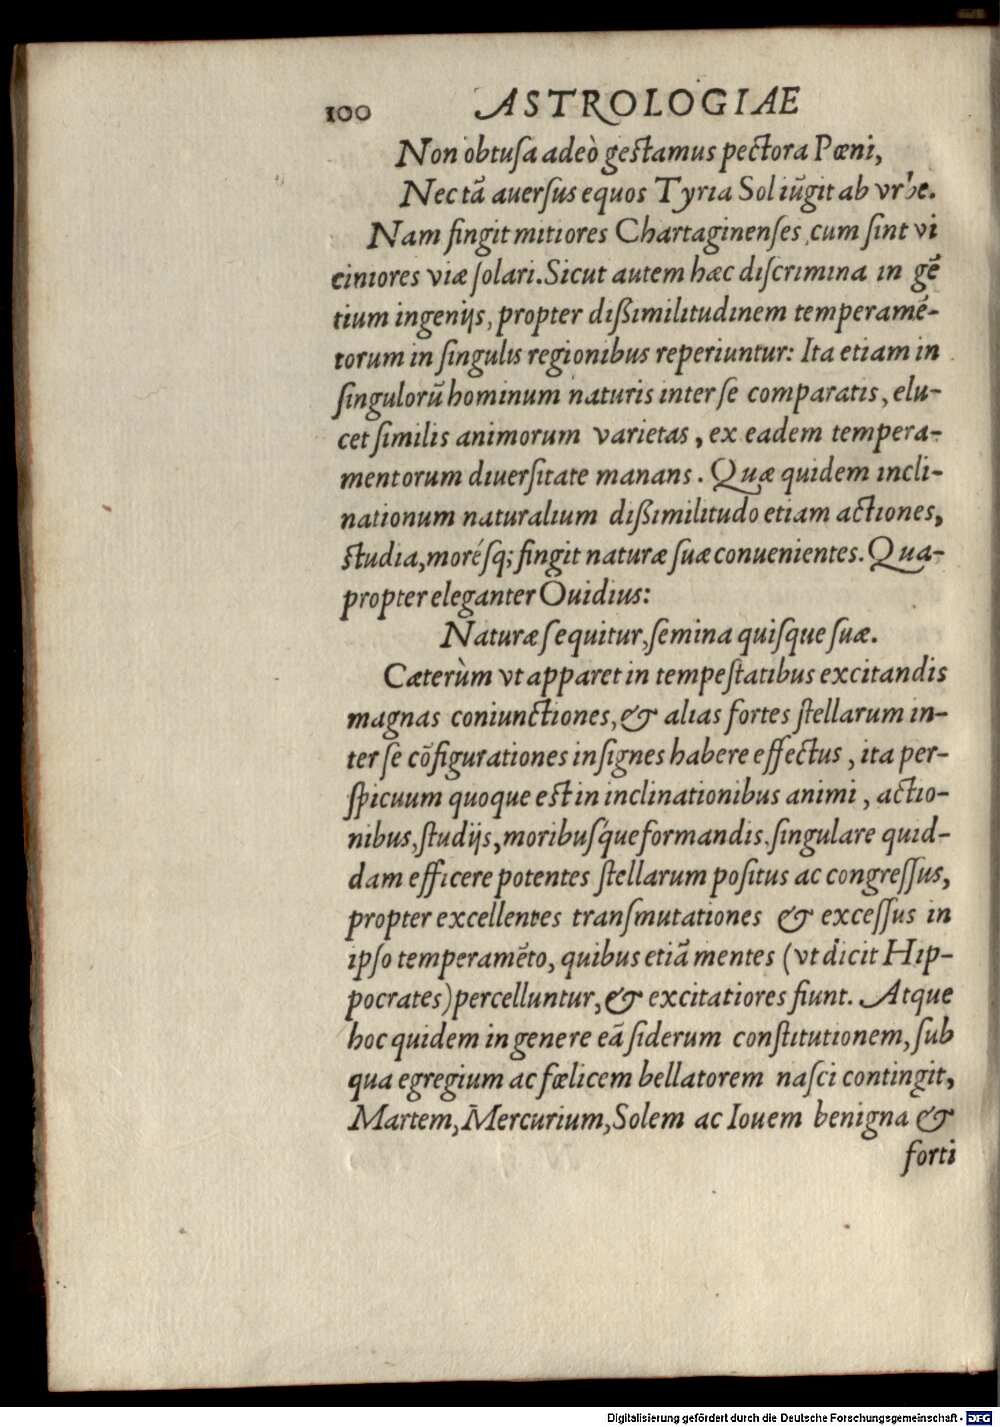 100 ASTROLOGIAE
Non obtuſa adeò geſtamus pectora Pœni,
Nec tā auerſus equos Tyria Sol iūgit ab vrbe.
Nam fingit mitiores Chartaginenſes, cum ſint vi
ciniores viæ ſolari. Sicut autem hæc diſcrimina in gē
tium ingenijs, propter diſsimilitudinem temperamē-
torum in ſingulis regionibus reperiuntur: Ita etiam in
ſingulorū hominum naturis inter ſe comparatis, elu-
cet ſimilis animorum varietas, ex eadem tempera-
mentorum diuerſitate manans. Quæ quidem incli-
nationum naturalium diſsimilitudo etiam actiones,
ſtudia, moréſq; fingit naturæ ſuæ conuenientes. Qua-
propter eleganter Ouidius:
Naturæ ſequitur, ſemina quiſque ſuæ.
Cæterùm vt apparet in tempeſtatibus excitandis
magnas coniunctiones, & alias fortes ſtellarum in-
ter ſe cōfigurationes inſignes habere effectus, ita per-
ſpicuum quoque eſt in inclinationibus animi, actio-
nibus, ſtudijs, moribuſque formandis, ſingulare quid-
dam efficere potentes ſtellarum poſitus ac congreſſus,
propter excellentes tranſmutationes & exceſſus in
ipſo temperamēto, quibus etiā mentes (vt dicit Hip-
pocrates) percelluntur, & excitatiores fiunt. Atque
hoc quidem in genere eā ſiderum conſtitutionem, ſub
qua egregium ac fœlicem bellatorem naſci contingit,
Martem, Mercurium, Solem ac Iouem benigna &
forti
Digitalisierung gefördert durch die Deutsche Forschungsgemeinschaft - DFG